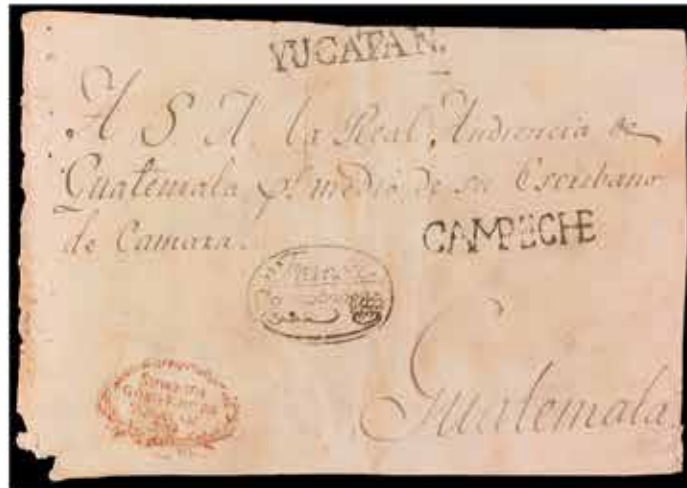 YUCATAN.
A S A la Real Audiencia de
Guatemala pr. medio de su Escribano
de Camara.
CAMPECHE
Guatemala